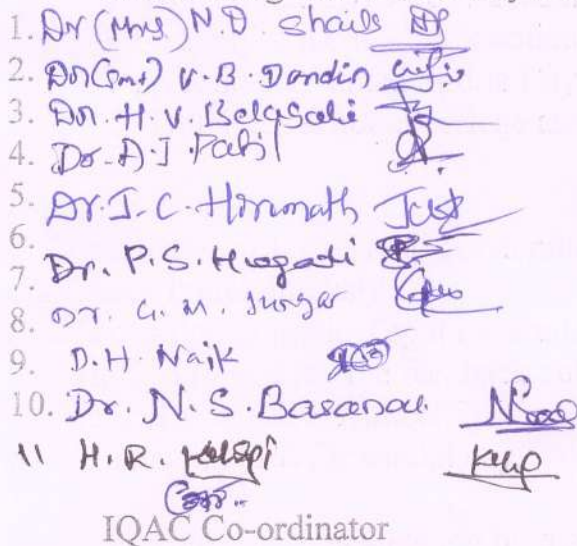 1. Dr (Mrs) N.D. Shails
2. Dr (Smt) V.B. Dandin
3. Dr. H.V. Belagali
4. Dr. A.J Patil
5. Dr. I.C. Hiremath
6.
7. Dr. P.S. Hugadi
8. Dr. G.M. Sungar
9. D.H. Naik
10. Dr. N.S. Basanal
11 H.R.
IQAC Co-ordinator